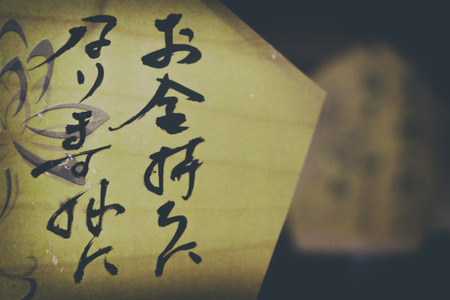 お金持ちに
なります様に